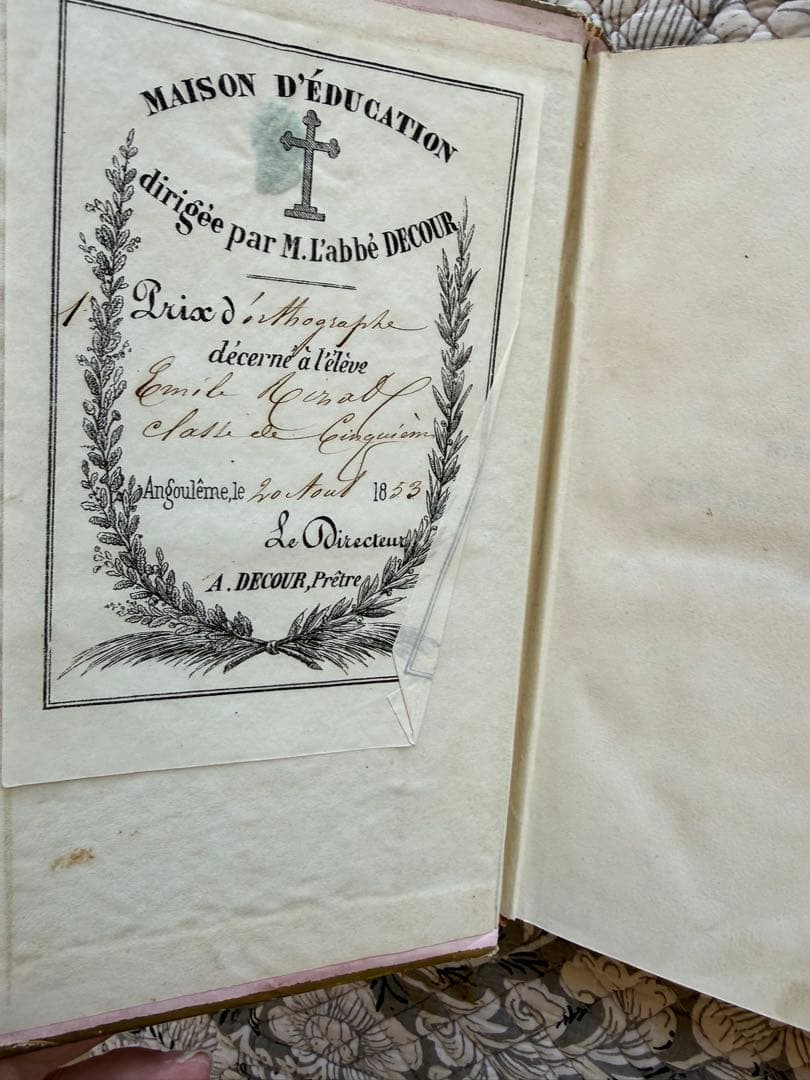 MAISON D'ÉDUCATION
dirigée par M. L'abbé DECOUR
1 Prix d'orthographe
décerné à l'élève
Emile
classe de Cinquième
Angoulême, le 20 Aout 1853
Le Directeur
A. DECOUR, Prêtre